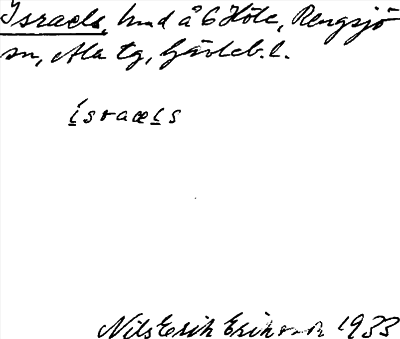 Israels, hmd å 6 Höle, Rengsjö
sn, Ala tg, Gävleb. l.
ísraɶls
Nils Erik Eriksson 1933